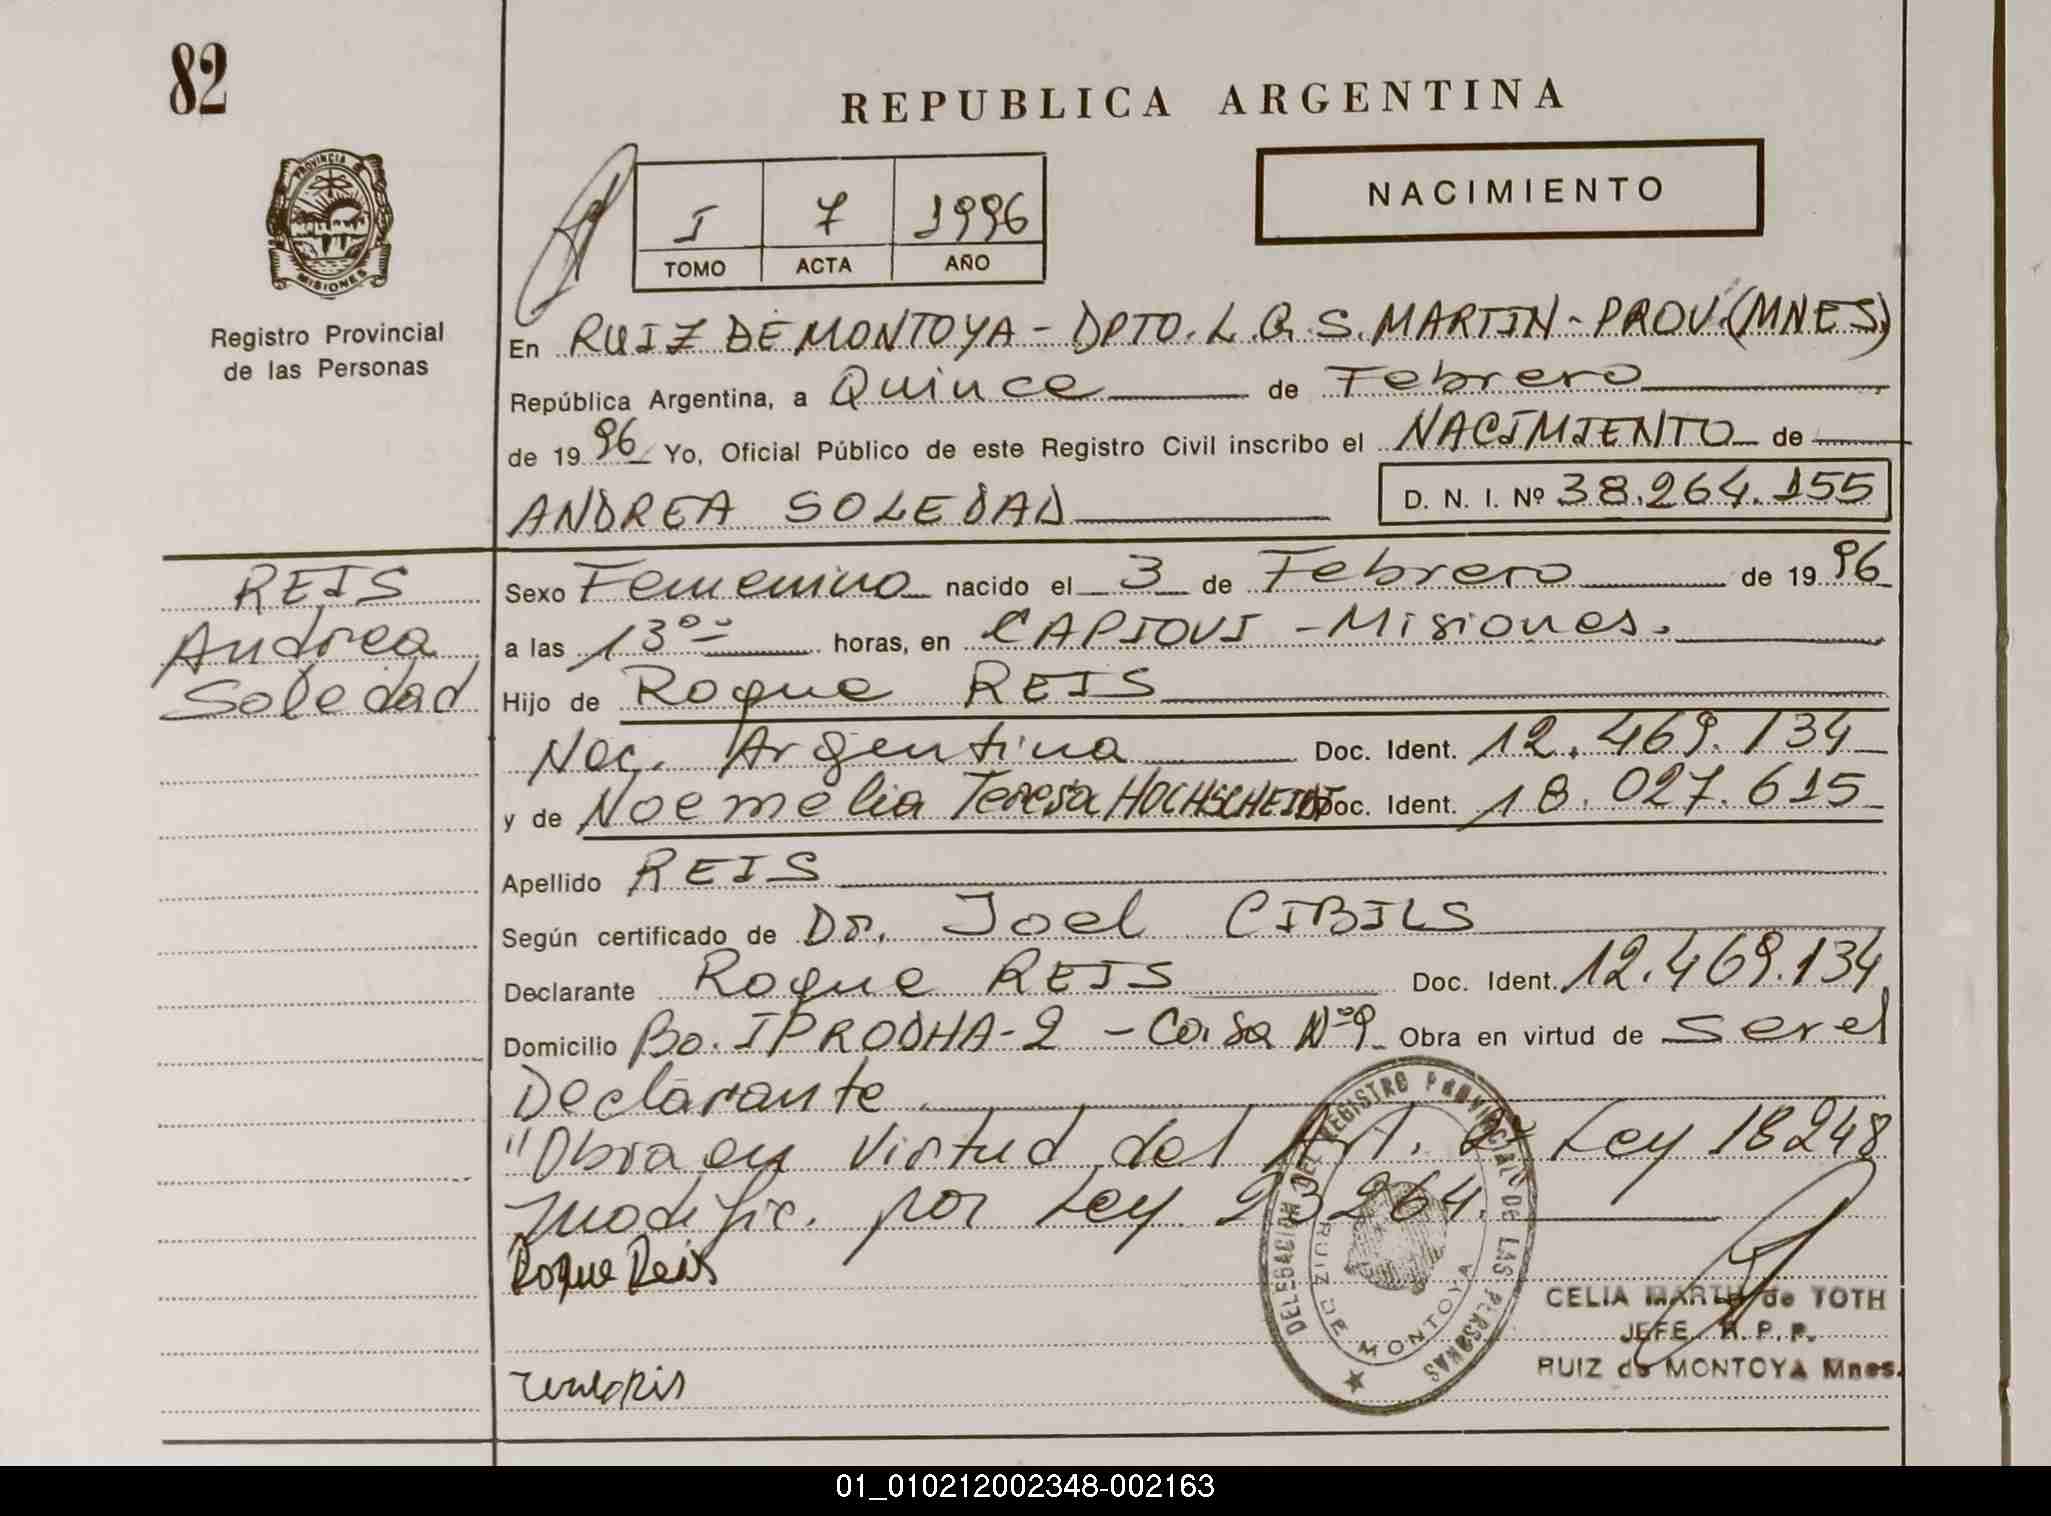 82
REPUBLICA ARGENTINA
PROVINCIA
MISIONES
Registro Provincial
de las Personas
I 7 1996
TOMO ACTA AÑO
NACIMIENTO
En RUIZ DE MONTOYA - DPTO. L. G. S. MARTIN - PROV. (MNES)
República Argentina, a Quince de Febrero
de 1996 Yo, Oficial Público de este Registro Civil inscribo el NACIMIENTO de
ANDREA SOLEDAD D. N. I. Nº 38.264.155
REIS
Andrea
Soledad
Sexo Femenino nacido el 3 de Febrero de 1996
a las 13°° horas, en CAPIOVI - Misiones.
Hijo de Roque REIS
Nac. Argentina Doc. Ident. 12.469.134
y de Noemelia Teresa HOCHSCHEIDT Doc. Ident. 18.027.615
Apellido REIS
Según certificado de Dr. Joel CIBILS
Declarante Roque REIS Doc. Ident. 12.469.134
Domicilio Bo. IPRODHA-2 - Casa Nº9 Obra en virtud de ser el
Declarante.
"Obra en Virtud del Art. 2º Ley 18248
modific. por Ley 23264.
Roque Reis
DELEGACION DEL REGISTRO PROVINCIAL DE LAS PERSONAS
RUIZ DE MONTOYA
CELIA MARTA de TOTH
JEFE R. P. P.
RUIZ de MONTOYA Mnes.
01_010212002348-002163